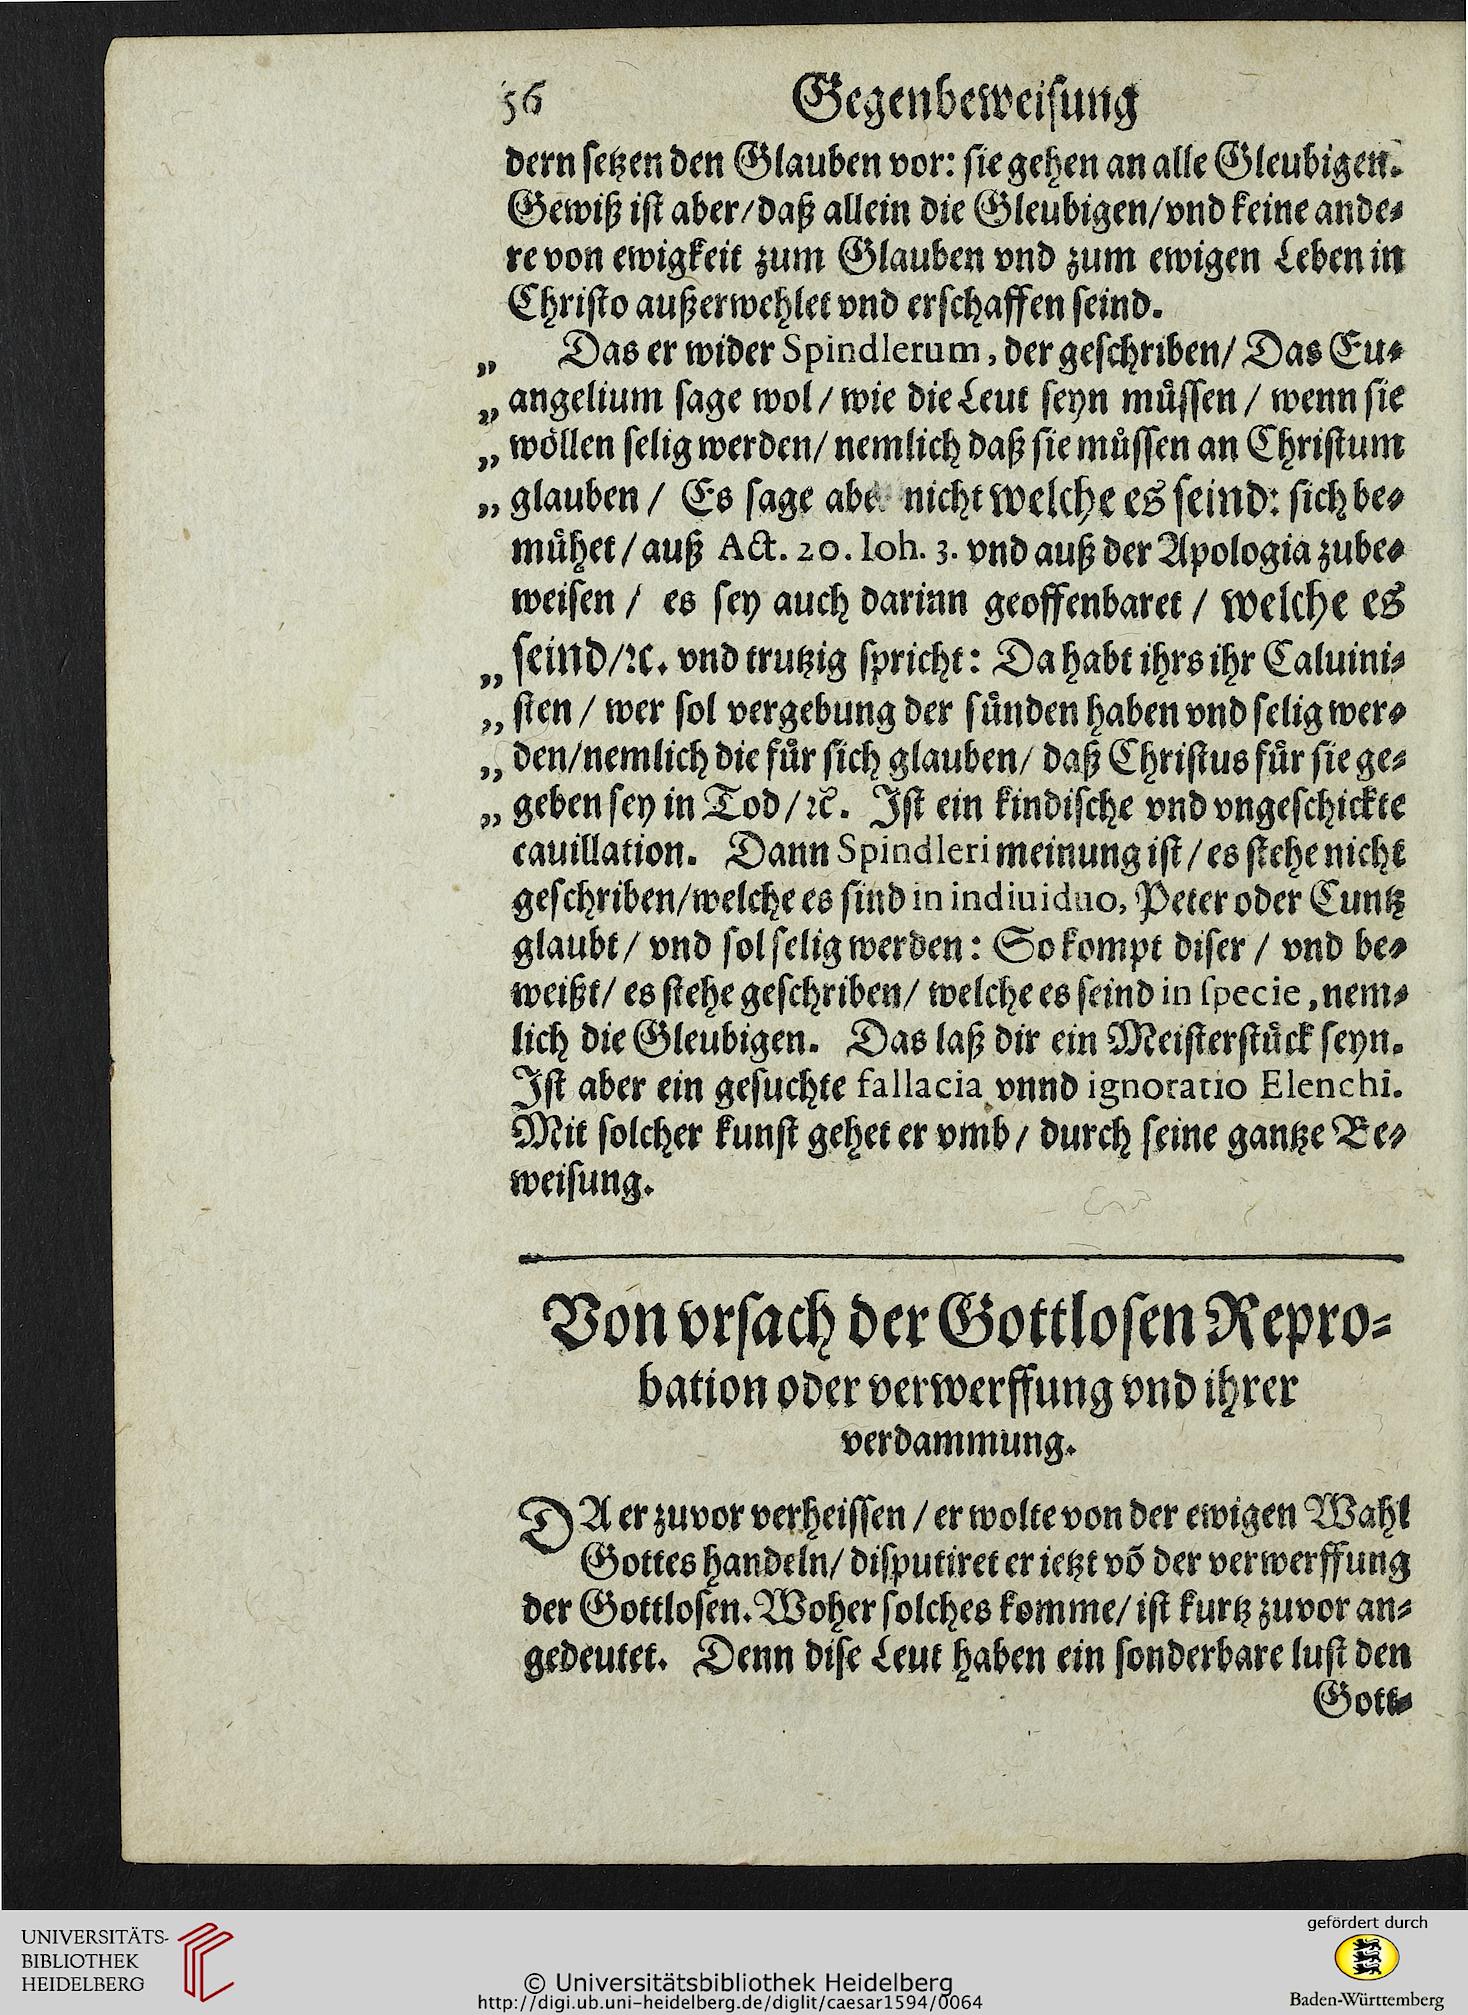 56 Gegenbeweiſung
dern ſetzen den Glauben vor: ſie gehen an alle Gleubigen.
Gewiß iſt aber/daß allein die Gleubigen/vnd keine ande⸗
re von ewigkeit zum Glauben vnd zum ewigen Leben in
Chriſto außerwehlet vnd erſchaffen ſeind.
„ Das er wider Spindlerum, der geſchriben/ Das Eu⸗
„ angelium ſage wol/ wie die Leut ſeyn muͤſſen/ wenn ſie
„ woͤllen ſelig werden/ nemlich daß ſie muͤſſen an Chriſtum
„ glauben/ Es ſage aber nicht welche es ſeind: ſich be⸗
muͤhet/ auß Act. 20. Ioh. 3. vnd auß der Apologia zube⸗
weiſen/ es ſey auch darinn geoffenbaret/ welche es
„ ſeind/ꝛc. vnd trutzig ſpricht: Da habt ihrs ihr Caluini⸗
„ ſten/ wer ſol vergebung der ſuͤnden haben vnd ſelig wer⸗
„ den/nemlich die fuͤr ſich glauben/ daß Chriſtus fuͤr ſie ge⸗
„ geben ſey in Tod/ꝛc̄. Iſt ein kindiſche vnd vngeſchickte
cauillation. Dann Spindleri meinung iſt/ es ſtehe nicht
geſchriben/welche es ſind in indiuiduo, Peter oder Cuntz
glaubt/ vnd ſol ſelig werden: So kompt diſer/ vnd be⸗
weißt/ es ſtehe geſchriben/ welche es ſeind in ſpecie, nem⸗
lich die Gleubigen. Das laß dir ein Meiſterſtuͤck ſeyn.
Iſt aber ein geſuchte fallacia vnnd ignoratio Elenchi.
Mit ſolcher kunſt gehet er vmb/ durch ſeine gantze Be⸗
weiſung.
Von vrſach der Gottloſen Repro⸗
bation oder verwerffung vnd ihrer
verdammung.
DA er zuvor verheiſſen/ er wolte von der ewigen Wahl
Gottes handeln/ diſputiret er ietzt võ der verwerffung
der Gottloſen. Woher ſolches komme/ iſt kurtz zuvor an⸗
gedeutet. Denn diſe Leut haben ein ſonderbare luſt den
Gott⸗
UNIVERSITÄTS-
BIBLIOTHEK
HEIDELBERG
© Universitätsbibliothek Heidelberg
http://digi.ub.uni-heidelberg.de/diglit/caesar1594/0064
gefördert durch
Baden-Württemberg